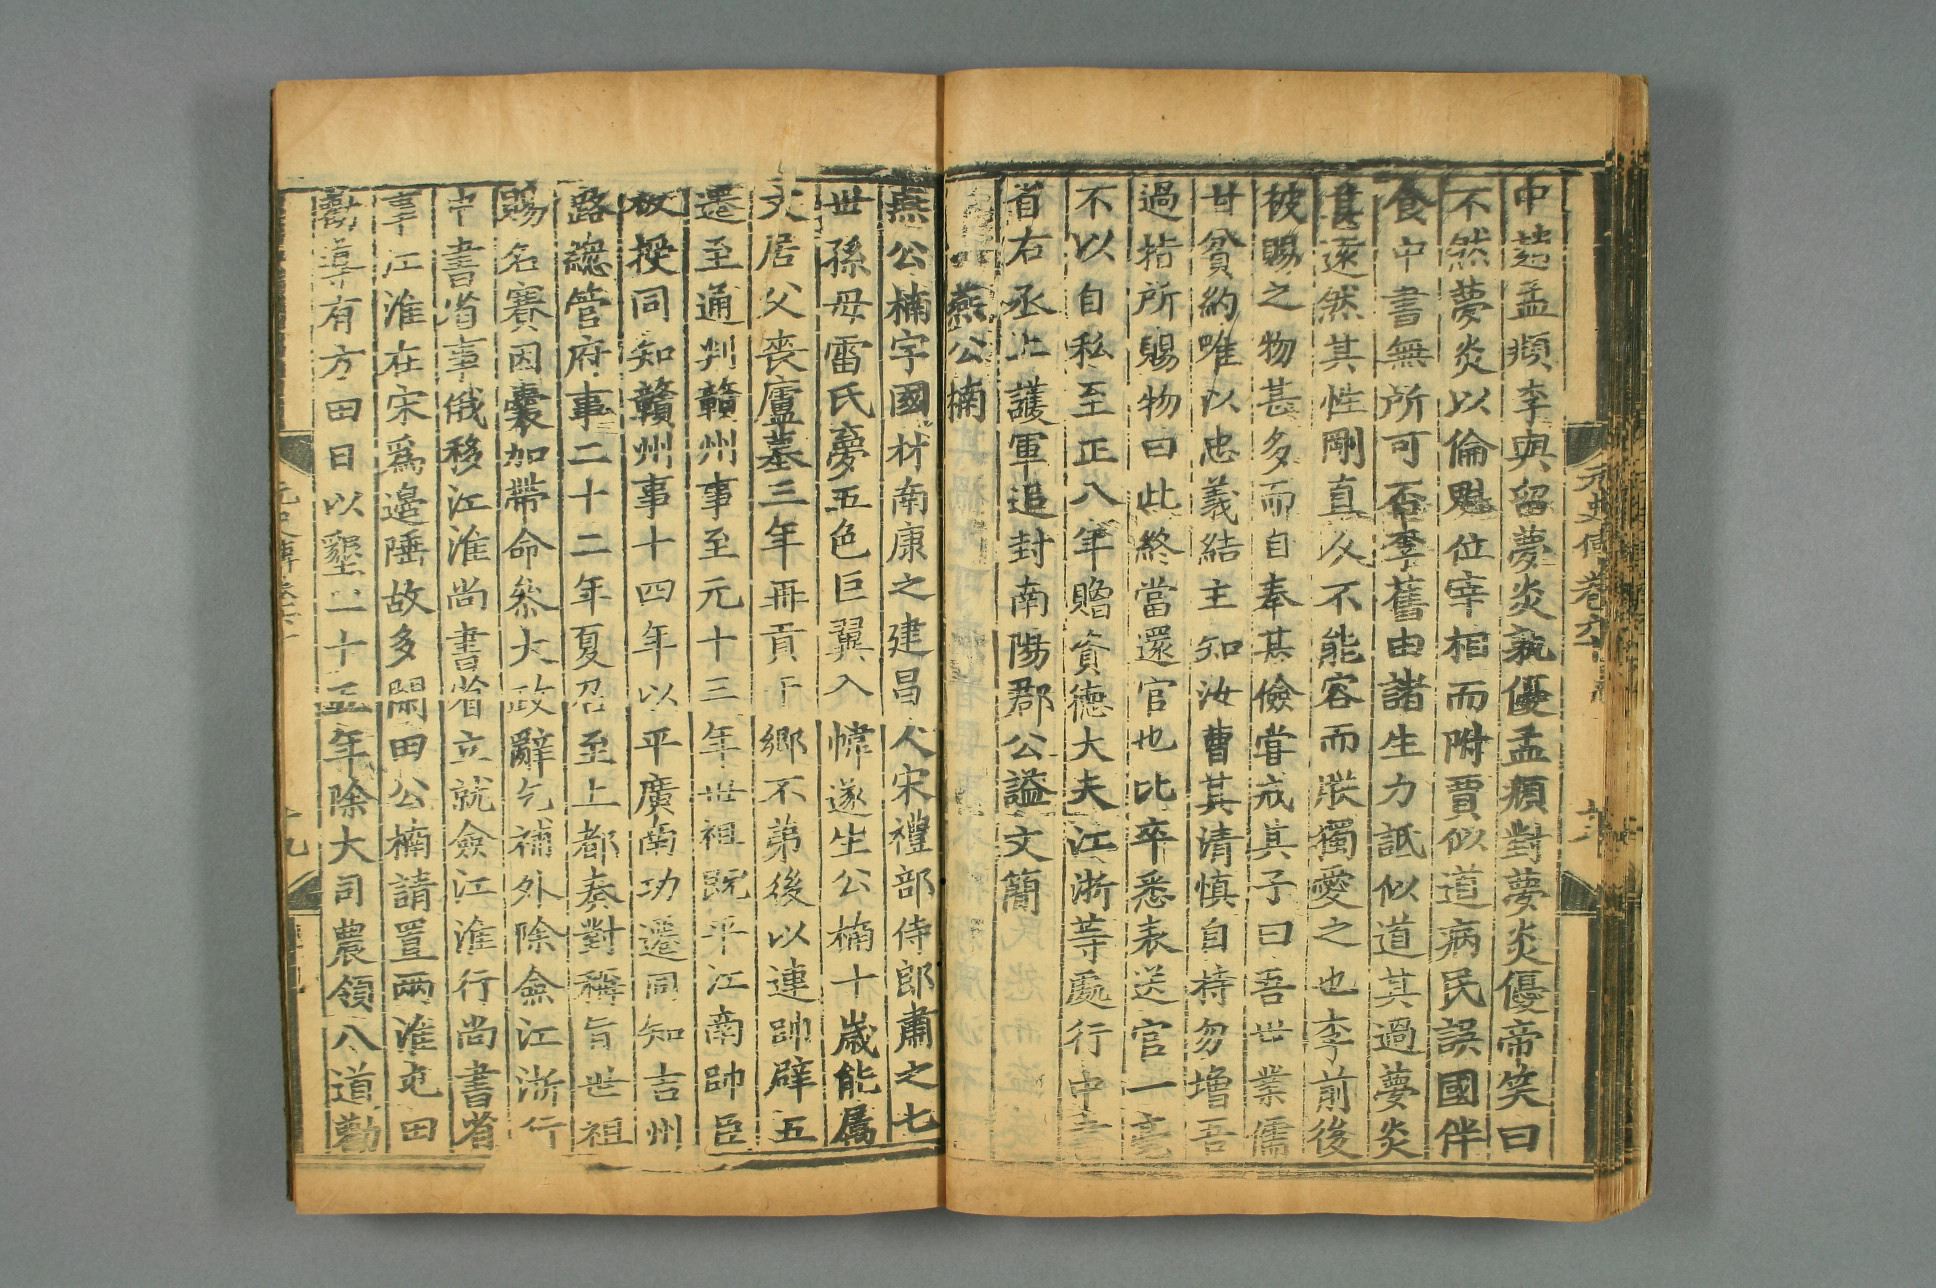 中趙孟頫李與留夢炎孰優孟頫對夢炎優帝笑曰
不然夢炎以倫魁位宰相而附賈似道病民誤國伴
食中書無所可否李舊由諸生力詆似道其過夢炎
甚遠然其性剛直人不能容而朕獨愛之也李前後
被賜之物甚多而自奉甚儉嘗戒其子曰吾世業儒
甘貧約唯以忠義結主知汝曹其清慎自持勿增吾
過指所賜物曰此終當還官也比卒悉表送官一毫
不以自私至正八年贈資德大夫江浙等處行中書
省右丞上護軍追封南陽郡公謚文簡
燕公楠
燕公楠字國材南康之建昌人宋禮部侍郎肅之七
世孫母雷氏夢五色巨翼入幃遂生公楠十歲能属
文居父喪廬墓三年再貢于鄉不第後以連帥辟五
遷至通判贛州事至元十三年世祖既平江南帥臣
板授同知贛州事十四年以平廣南功遷同知吉州
路總管府事二十二年夏召至上都奏對稱旨世祖
賜名賽因囊加帶命叅大政辭乞補外除僉江浙行
中書省事俄移江淮尚書省立就僉江淮行尚書省
事江淮在宋爲邊陲故多閑田公楠請置兩淮屯田
勸導有方田日以墾二十五年除大司農領八道勸
元史傳卷六十
十八
元史傳卷六十
十九